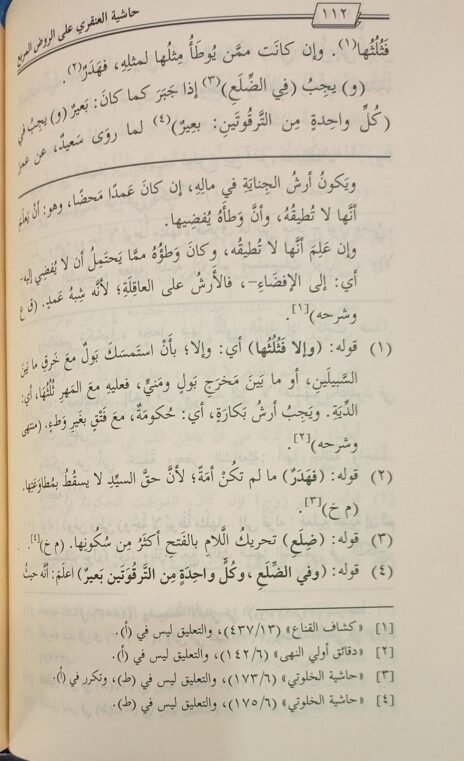 ١١٢
حاشية العنقري على الروض المربع
فَثُلُثُها(١). وإن كانَت ممَّن يُوطَأُ مِثلُها لمثلِهِ، فهَدَرٌ(٢).
(و) يجِبُ (في الضِّلَعِ)(٣) إذا جَبَرَ كما كانَ: بَعيرٌ (و) يجِبُ في
(كُلِّ واحِدةٍ مِن التَّرقُوتَينِ: بعِيرٌ)(٤) لما روَى سَعيدٌ، عن عمرَ
ويَكونُ أرشُ الجِنايَةِ في مالِهِ، إن كانَ عَمدًا مَحضًا، وهو: أنْ يَعلَمَ
أنَّها لا تُطيقُهُ، وأنَّ وَطأَهُ يُفضِيها.
وإن عَلِمَ أنَّها لا تُطيقُه، وكانَ وَطؤُهُ ممَّا يَحتَمِلُ أن لا يُفضِي إليه-
أي: إلى الإفضَاءِ-، فالأرشُ على العاقِلَةِ؛ لأنَّه شِبهُ عَمدٍ. (ق ع
وشرحه)[١].
(١) قوله: (وإلا فَثُلُثُها) أي: وإلا؛ بأَنْ استَمسَكَ بَولٌ معَ خَرقِ ما بَينَ
السَّبيلَينِ، أو ما بَينَ مَخرَجِ بَولٍ ومَنيٍّ، فعليهِ معَ المَهرِ ثُلُثُها، أي:
الدِّيَةِ. ويَجِبُ أرشُ بَكارَةٍ، أي: حُكومَةٌ، معَ فَتْقٍ بغَيرِ وَطءٍ. (منتهى
وشرحه)[٢].
(٢) قوله: (فهَدَرٌ) ما لم تكُنْ أمَةً؛ لأنَّ حقَّ السيِّدِ لا يسقُطُ بمُطاوَعَتِها.
(م خ)[٣].
(٣) قوله: (ضِلَعِ) تحريكُ الَّلامِ بالفَتحِ أكثَرُ مِن سُكُونِها. (م خ)[٤].
(٤) قوله: (وفي الضِّلَعِ، وكُلِّ واحِدةٍ مِن التَّرقُوَتَين بَعيرٌ) اعلَمْ: أنَّه حيثُ
[١] «كشاف القناع» (٤٣٧/١٣)، والتعليق ليس في (أ).
[٢] «دقائق أولي النهى» (١٤٢/٦)، والتعليق ليس في (أ).
[٣] «حاشية الخلوتي» (١٧٣/٦)، والتعليق ليس في (ط)، وتكرر في (أ).
[٤] «حاشية الخلوتي» (١٧٥/٦)، والتعليق ليس في (ط).